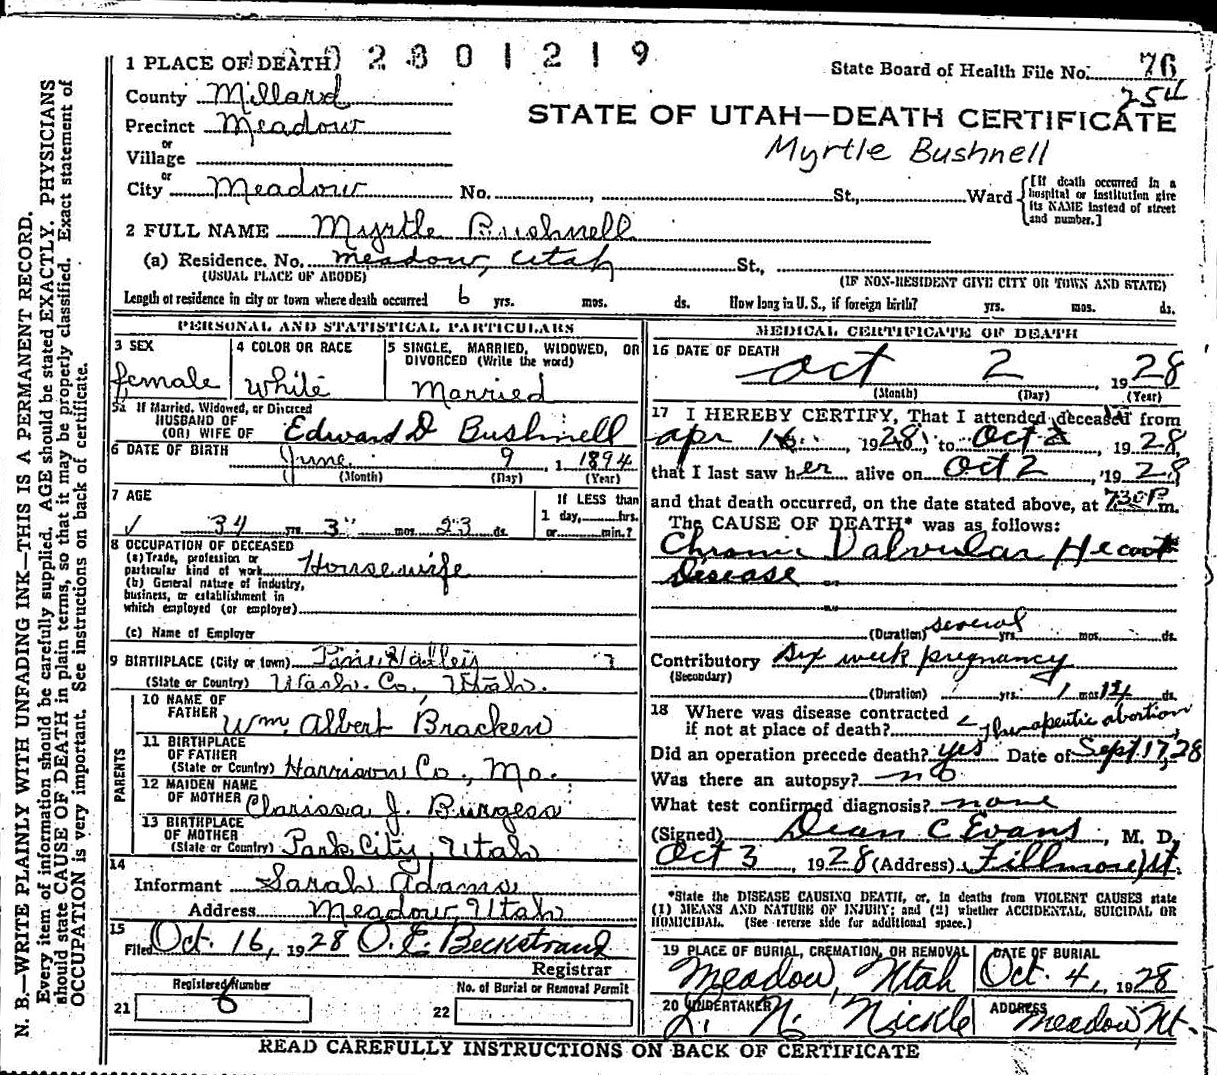 1 PLACE OF DEATH) 2801219
State Board of Health File No. 76
County Millard
254
Precinct Meadow
STATE OF UTAH—DEATH CERTIFICATE
or
Village
Myrtle Bushnell
or
City Meadow No. , St., Ward
[If death occurred in a hospital or institution give its NAME instead of street and number.]
2 FULL NAME Myrtle Bushnell
(a) Residence. No. Meadow, Utah St.,
(USUAL PLACE OF ABODE) (IF NON-RESIDENT GIVE CITY OR TOWN AND STATE)
Length of residence in city or town where death occurred 6 yrs. mos. ds. How long in U. S., if foreign birth? yrs. mos. ds.
PERSONAL AND STATISTICAL PARTICULARS
3 SEX
female
4 COLOR OR RACE
white
5 SINGLE, MARRIED, WIDOWED, OR DIVORCED (Write the word)
Married
5a If Married, Widowed, or Divorced
HUSBAND OF
(OR) WIFE OF Edward D Bushnell
6 DATE OF BIRTH June 9, 1 1894
(Month) (Day) (Year)
7 AGE
34 yrs. 3 mos. 23 ds.
If LESS than
1 day, hrs.
or min.?
8 OCCUPATION OF DECEASED
(a) Trade, profession or
particular kind of work Housewife
(b) General nature of industry,
business, or establishment in
which employed (or employer)
(c) Name of Employer
9 BIRTHPLACE (City or town) Pine Valley
(State or Country) Wash. Co., Utah.
PARENTS
10 NAME OF
FATHER Wm. Albert Bracken
11 BIRTHPLACE
OF FATHER
(State or Country) Harrison Co., Mo.
12 MAIDEN NAME
OF MOTHER Clarissa J. Burgess
13 BIRTHPLACE
OF MOTHER
(State or Country) Park City, Utah
14
Informant Sarah Adams
Address Meadow, Utah
15
Filed Oct. 16, 1928 O. E. Beckstrand
Registrar
Registered Number
21 6
No. of Burial or Removal Permit
22
MEDICAL CERTIFICATE OF DEATH
16 DATE OF DEATH
Oct 2, 1928
(Month) (Day) (Year)
17 I HEREBY CERTIFY, That I attended deceased from
Apr 16, 1928, to Oct 2, 1928,
that I last saw her alive on Oct 2, 1928
and that death occurred, on the date stated above, at 730 P. m.
The CAUSE OF DEATH* was as follows:
Chronic Valvular Heart
Disease
(Duration) several yrs. mos. ds.
Contributory Six week pregnancy
(Secondary)
(Duration) yrs. 1 mos. 14 ds.
18 Where was disease contracted
if not at place of death? Therapeutic abortion
Did an operation precede death? yes Date of Sept 17, 28
Was there an autopsy? no
What test confirmed diagnosis? none
(Signed) Dean C Evans, M. D.
Oct 3, 1928 (Address) Fillmore, Ut.
*State the DISEASE CAUSING DEATH, or, in deaths from VIOLENT CAUSES state
(1) MEANS AND NATURE OF INJURY; and (2) whether ACCIDENTAL, SUICIDAL OR
HOMICIDAL. (See reverse side for additional space.)
19 PLACE OF BURIAL, CREMATION, OR REMOVAL
Meadow, Utah
DATE OF BURIAL
Oct. 4, 1928
20 UNDERTAKER
L. N. Nickle
ADDRESS
Meadow, Ut.
READ CAREFULLY INSTRUCTIONS ON BACK OF CERTIFICATE
N. B.—WRITE PLAINLY WITH UNFADING INK—THIS IS A PERMANENT RECORD.
Every item of information should be carefully supplied. AGE should be stated EXACTLY. PHYSICIANS
should state CAUSE OF DEATH in plain terms, so that it may be properly classified. Exact statement of
OCCUPATION is very important. See instructions on back of certificate.